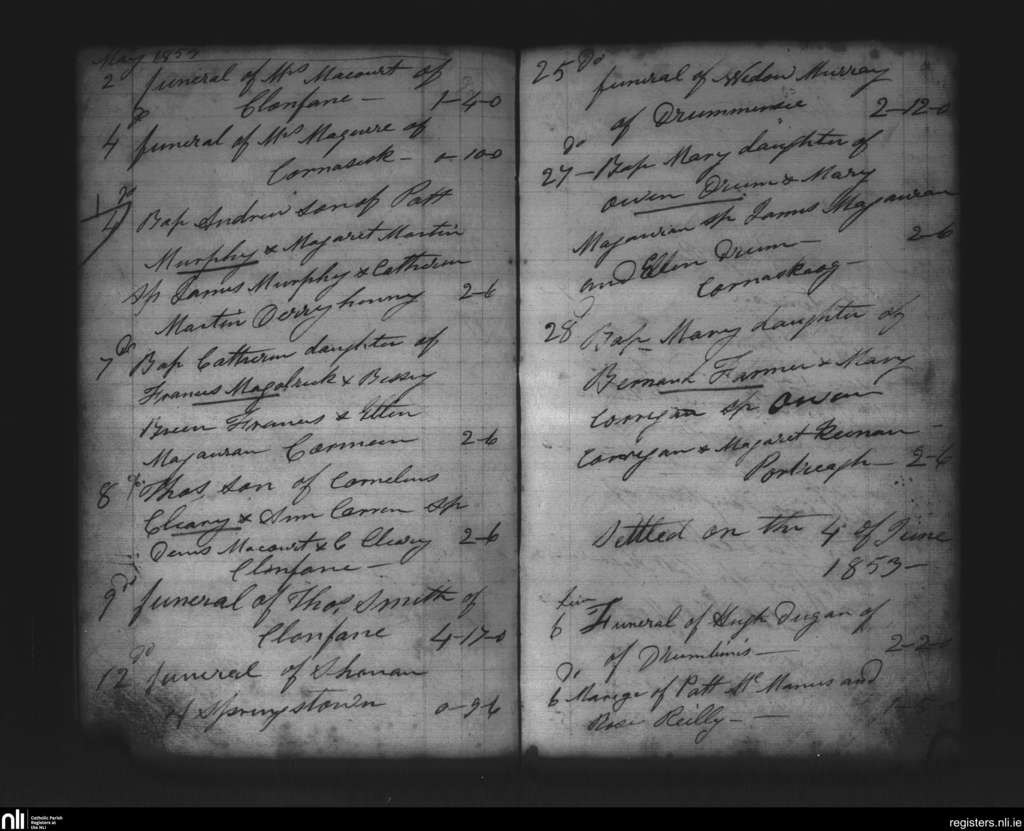 May 1853
2 funeral of Mrs Macourt of
Clonfane - 1-4-0
do
4 funeral of Mrs Maguire of
Cornaseek - 0-10-0
do
Bap Andrew son of Patt
Murphy & Magaret Martin
Sp James Murphy & Catherin
Martin Derryhonny 2-6
7 do Bap Catherin daughter of
Francis Magolrick & Bessy
Breen Francis & Ellen
Magauran 2-6
8 do Thos son of Cornelius
Cleary & Ann Sp
Denis Macourt & C Cleary 2-6
Clonfane -
9 funeral of Thos Smith of
Clonfane 4-17-0
do
12 funeral of Shanan
of Springstown 0-9-6
25 do funeral of Wedow Murray
of 2-12-0
do
27 - Bap Mary daughter of
Owen Drum & Mary
Magauran sp James Magauran
and Ellen Drum - 2-6
Cornaskeog -
28 Bap Mary daughter of
Bernard Farmer & Mary
Corrigan sp Owen
Corrigan & Magaret Keenan -
Portreagh - 2-6
Settled on the 4 of June
1853 -
6 Funeral of Hugh Dugan of
of - 2-2-0
do
6 Marige of Patt Mc Manus and
Rose Reilly - -
nli
Catholic Parish
Registers at
the NLI
registers.nli.ie